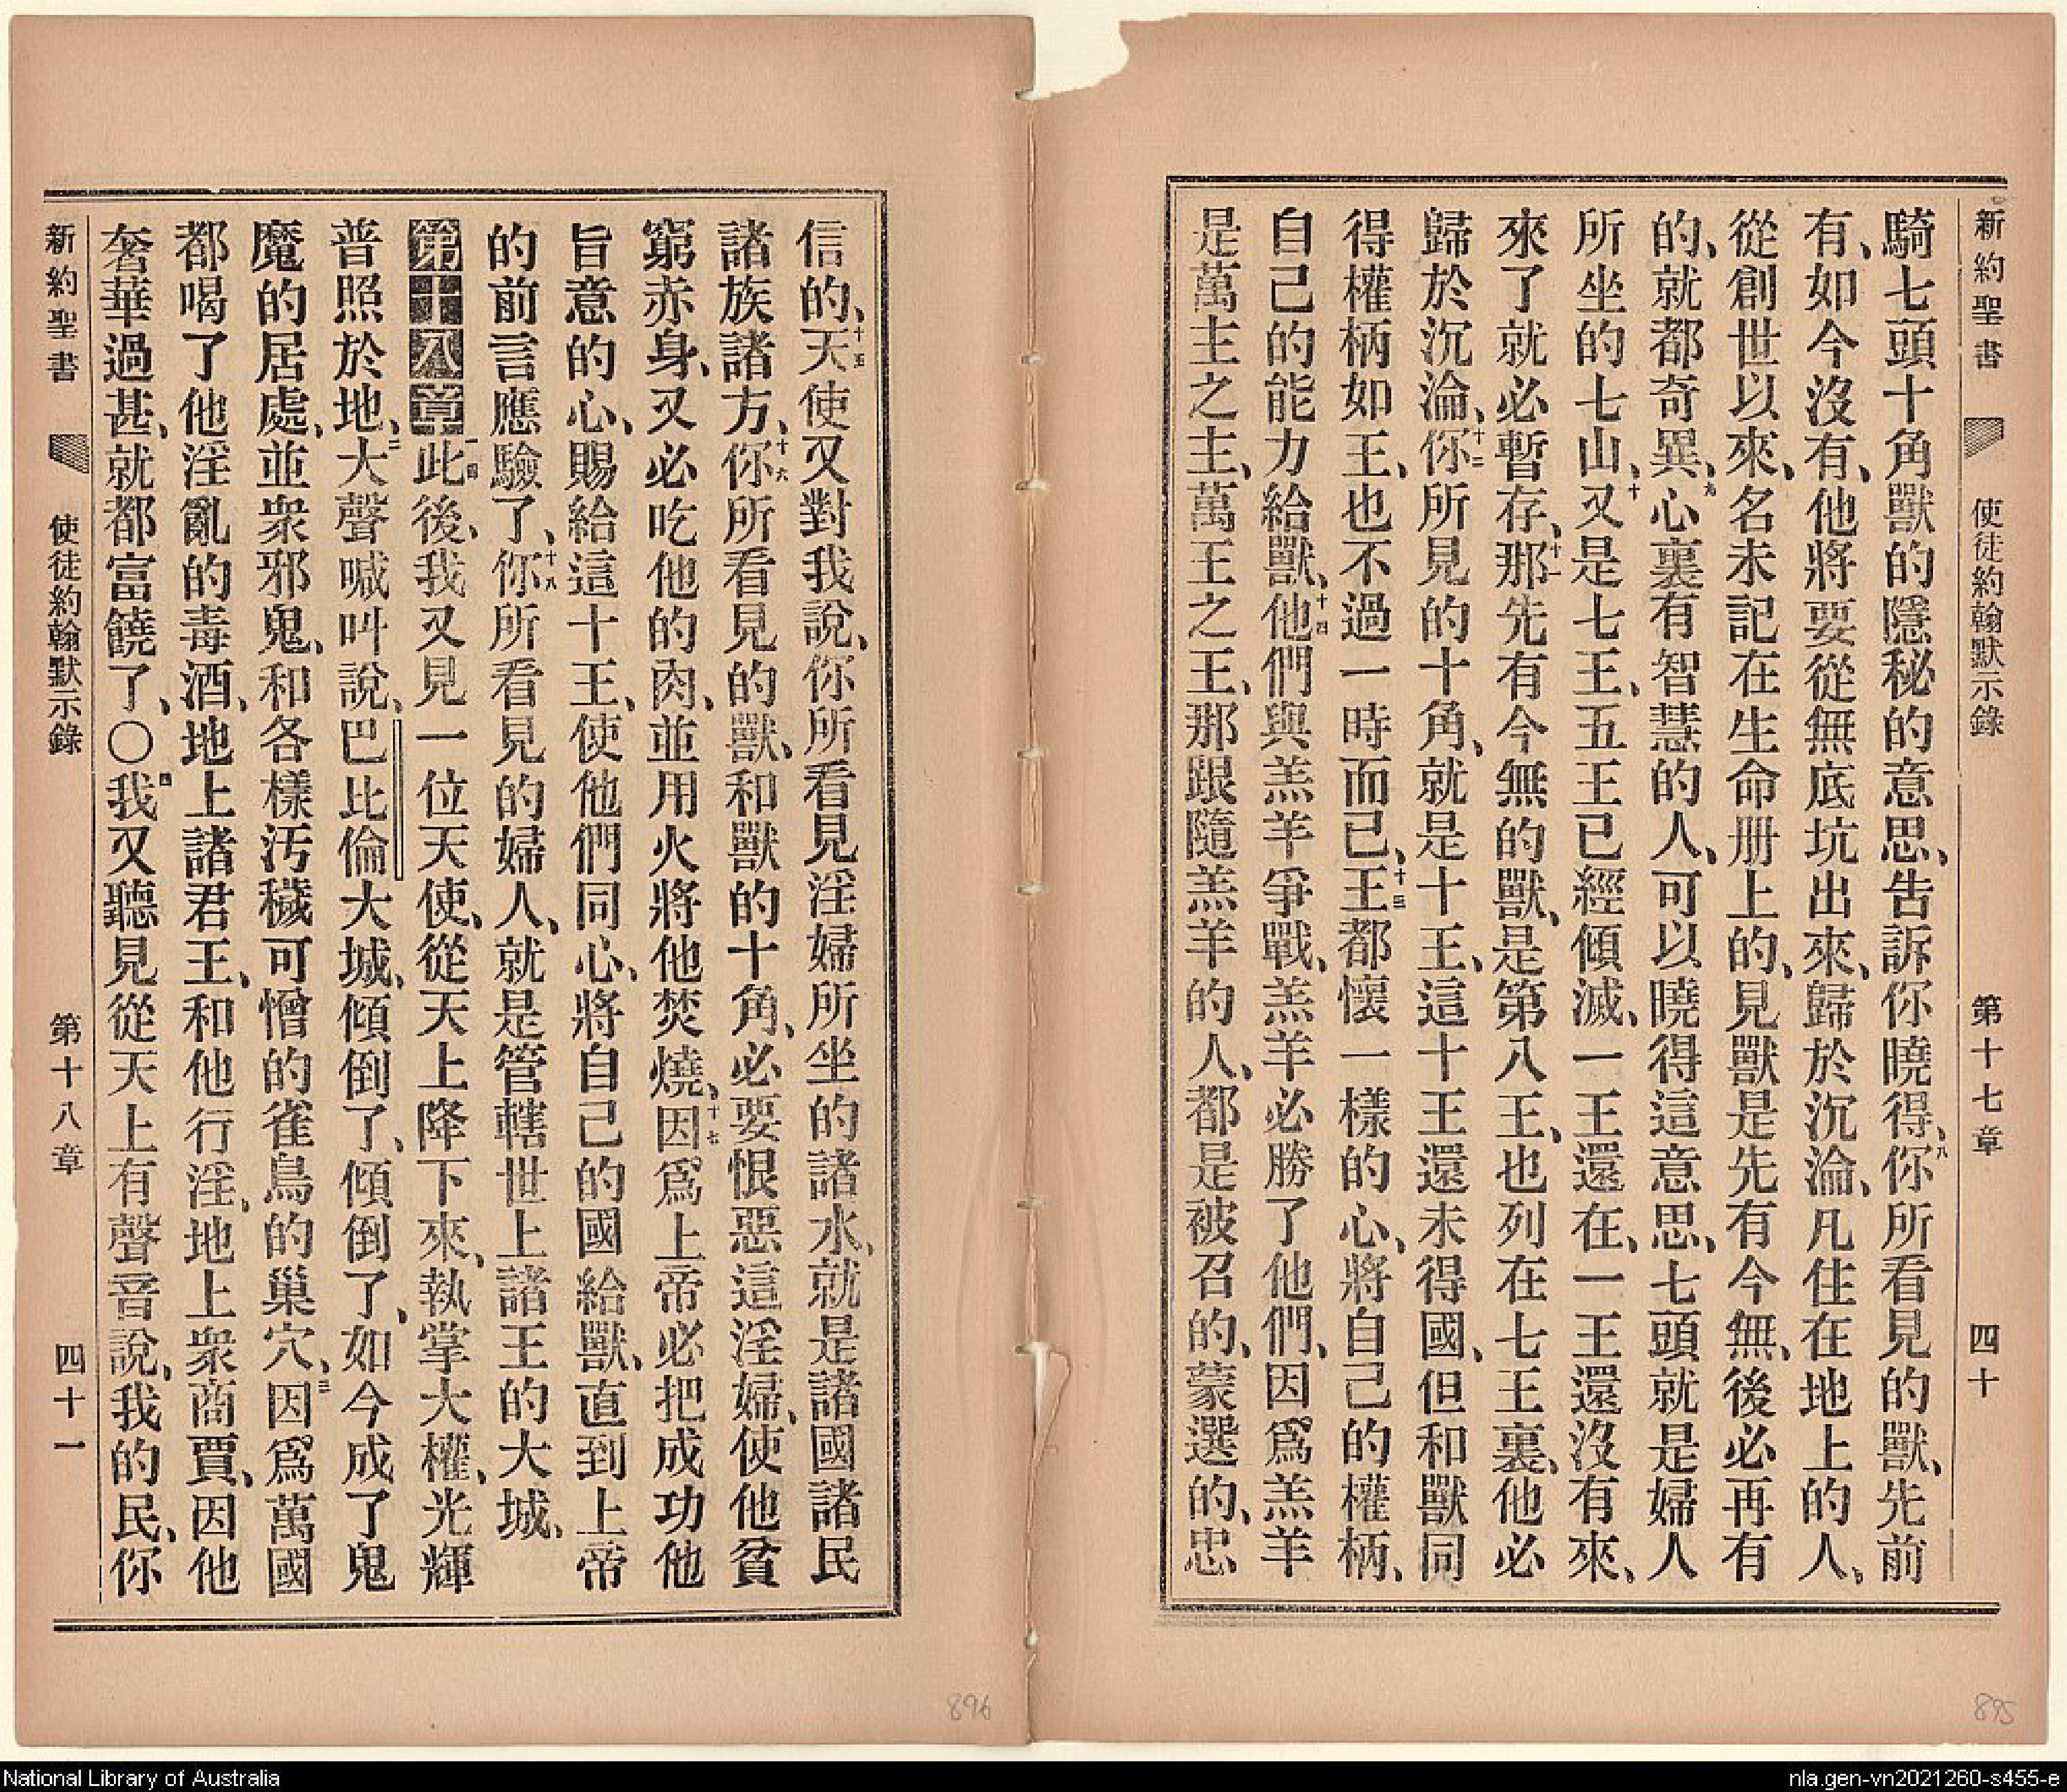 新約聖書 使徒約翰默示錄 第十七章 四十
騎七頭十角獸的隱秘的意思、告訴你曉得、八你所看見的獸、先前
有、如今沒有、他將要從無底坑出來、歸於沉淪、凡住在地上的人、
從創世以來、名未記在生命册上的、見獸是先有今無、後必再有
的、就都奇異、九心裏有智慧的人、可以曉得這意思、七頭就是婦人
所坐的七山、十又是七王、五王已經傾滅、一王還在、一王還沒有來、
來了就必暫存、十一那先有今無的獸、是第八王、也列在七王裏、他必
歸於沉淪、十二你所見的十角、就是十王、這十王還未得國、但和獸同
得權柄如王、也不過一時而已、十三王都懷一樣的心、將自己的權柄、
自己的能力給獸、十四他們與羔羊爭戰、羔羊必勝了他們、因爲羔羊
是萬主之主、萬王之王、那跟隨羔羊的人、都是被召的、蒙選的、忠
信的、十五天使又對我說、你所看見淫婦所坐的諸水、就是諸國諸民
諸族諸方、十六你所看見的獸、和獸的十角、必要恨惡這淫婦、使他貧
窮赤身、又必吃他的肉、並用火將他焚燒、十七因爲上帝必把成功他
旨意的心、賜給這十王、使他們同心、將自己的國給獸、直到上帝
的前言應驗了、十八你所看見的婦人、就是管轄世上諸王的大城、
第十八章一此後、我又見一位天使、從天上降下來、執掌大權、光輝
普照於地、二大聲喊叫說、巴比倫大城、傾倒了、傾倒了、如今成了鬼
魔的居處、並衆邪鬼、和各樣汚穢可憎的雀鳥的巢穴、三因爲萬國
都喝了他淫亂的毒酒、地上諸君王、和他行淫、地上衆商賈、因他
奢華過甚、就都富饒了、〇四我又聽見從天上有聲音說、我的民、你
新約聖書 使徒約翰默示錄 第十八章 四十一
896
895
National Library of Australia
nla.gen-vn2021260-s455-e